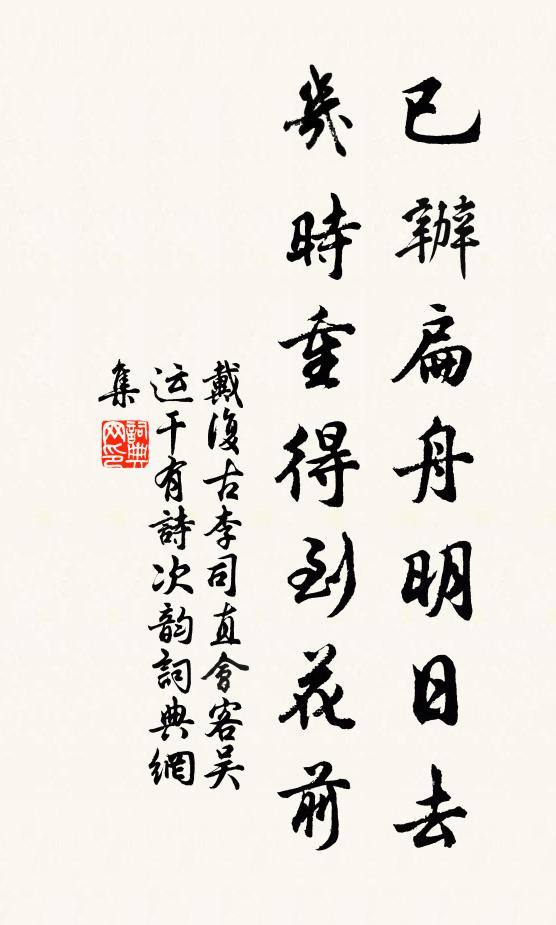 已辦扁舟明日去
幾時重得到花前
戴復古李司直會客吴
运干有詩次韵詞典網
集
詞典网印